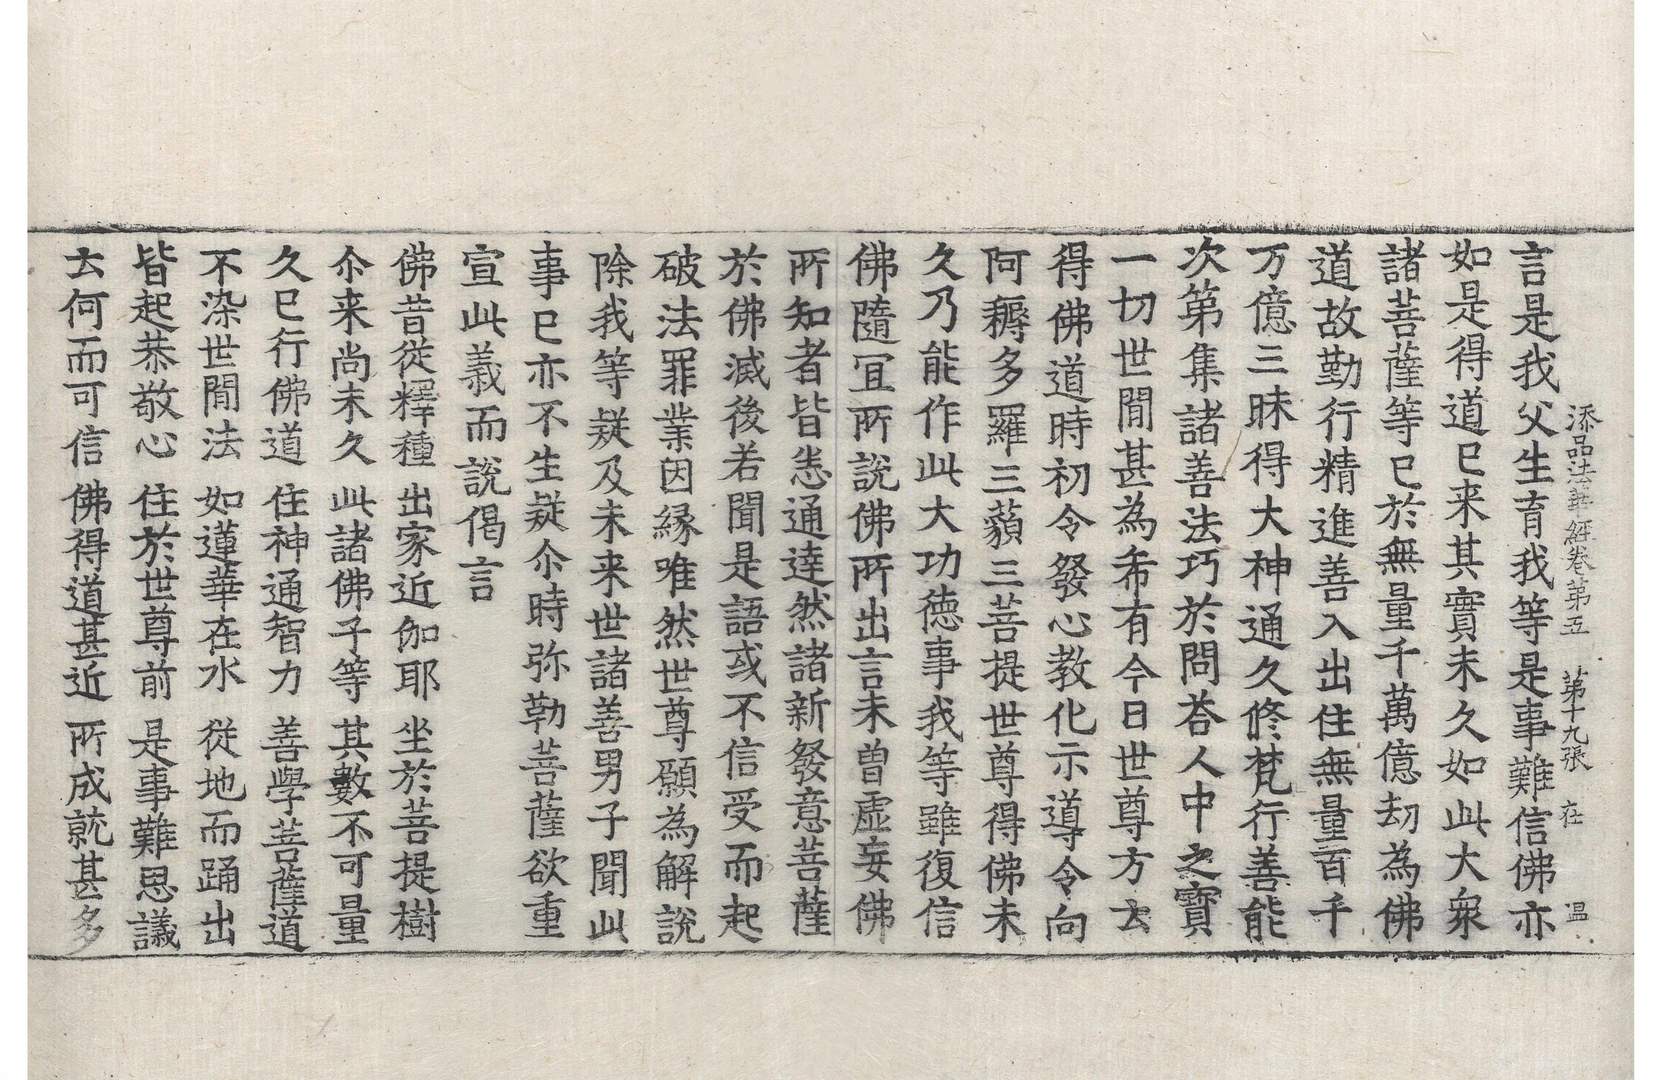 添品法華經卷第五 第十九張 在 温
言是我父生育我等是事難信佛亦
如是得道已来其實未久如此大衆
諸菩薩等已於無量千萬億劫為佛
道故勤行精進善入出住無量百千
万億三昧得大神通久修梵行善能
次第集諸善法巧於問荅人中之寶
一切世間甚為希有今日世尊方云
得佛道時初令發心教化示導令向
阿耨多羅三藐三菩提世尊得佛未
久乃能作此大功德事我等雖復信
佛隨冝所說佛所出言未曽虛妄佛
所知者皆悉通達然諸新發意菩薩
於佛滅後若聞是語或不信受而起
破法罪業因縁唯然世尊願為解說
除我等疑及未来世諸善男子聞此
事已亦不生疑尒時弥勒菩薩欲重
宣此義而說偈言
佛昔從釋種 出家近伽耶 坐於菩提樹
尒来尚未久 此諸佛子等 其數不可量
久已行佛道 住神通智力 善學菩薩道
不染世間法 如蓮華在水 從地而踊出
皆起恭敬心 住於世尊前 是事難思議
云何而可信 佛得道甚近 所成就甚多